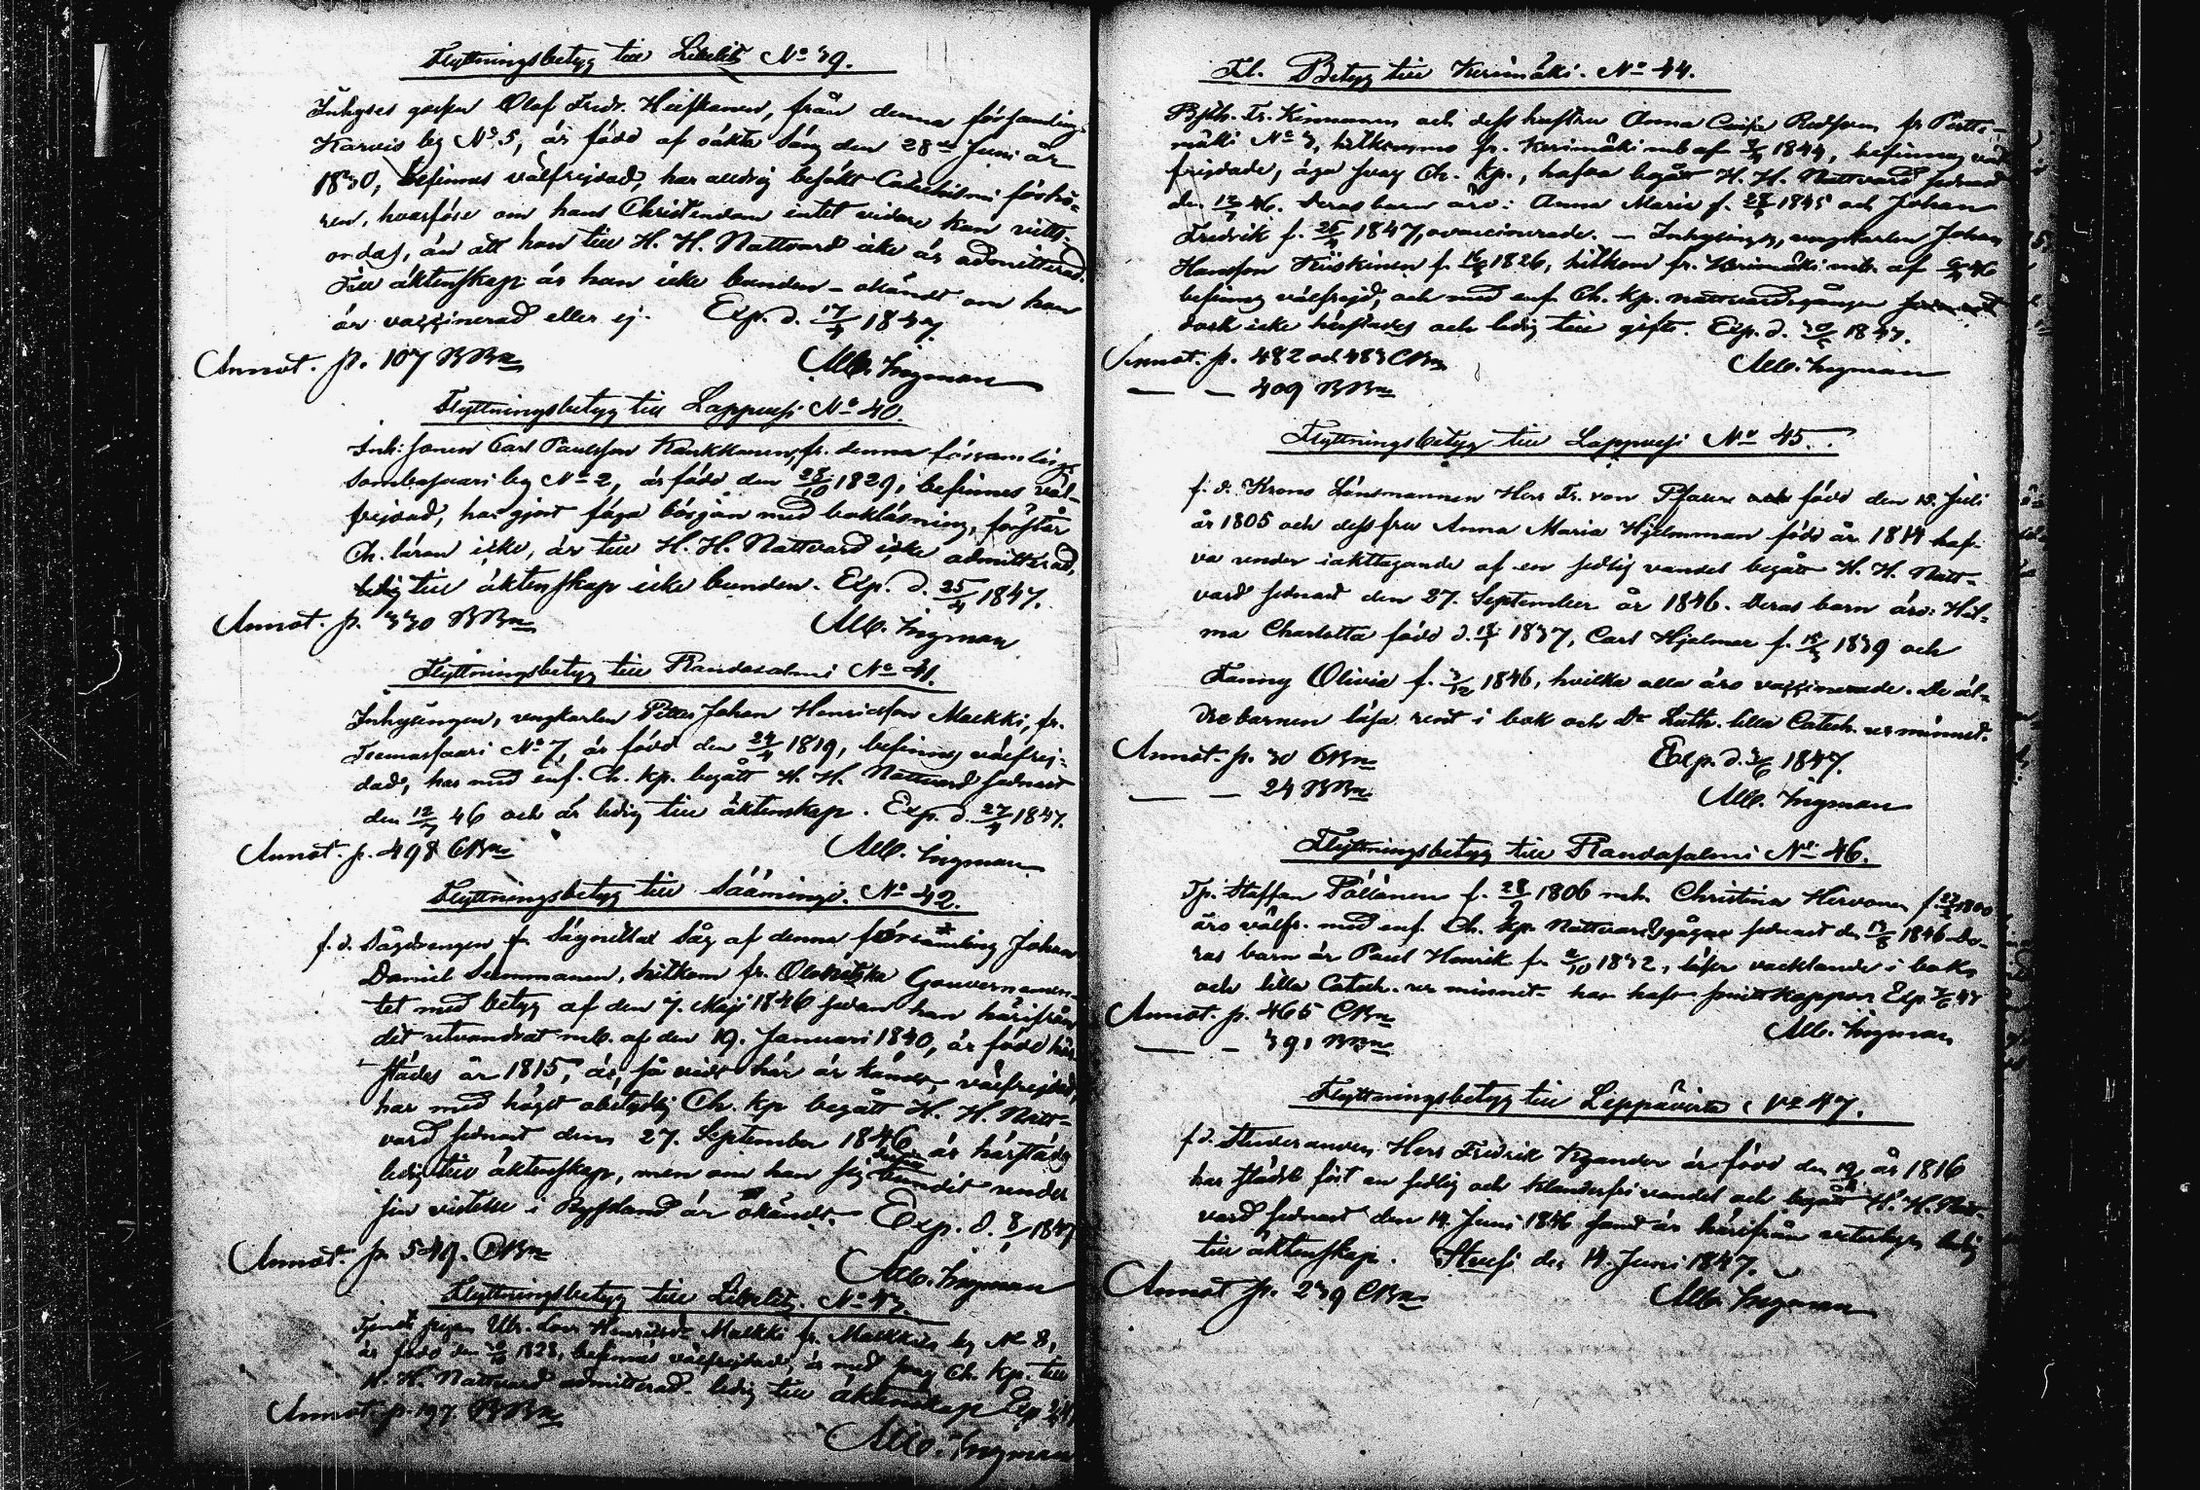 Flyttningsbetyg till Libelits No 39.
Inhyses gossen Olof Fredr. Heiskanen, från denna församling
Karvis by No 5, är född af oäkta säng den 28de Juni år
1830, befinnes välfrejdad, har aldrig besökt Catechismi förhö-
ren, hvarföre om hans Christendom intet vidare kan vitts-
ordas, än att han till H. H. Nattvard icke är admitterad.
Till äktenskap är han icke bunden - okändt om han
är vaccinerad eller ej. Exp. d. 17/4 1847.
Annot. p. 107 BBn Alb. Ingman
Flyttningsbetyg till Lappvesi No 40.
Inh: sonen Carl Paulsson Kankkunen, fr. denna församlings
Sambasaari by No 2, är född den 28/10 1829, befinnes väl-
frejdad, har gjort föga början med bokläsning, förstår
Ch. läran icke, är till H. H. Nattvard icke admitterad,
till äktenskap icke bunden. Exp. d. 25/4 1847.
Annot. p. 330 BBn Alb. Ingman
Flyttningsbetyg till Randasalmi No 41.
Inhysingen, ungkarlen Petter Johan Henricsson Malkki, fr.
No 7, är född den 24/4 1819, befinnes välfrej-
dad, har med enf. Ch. kp. begått H. H. Nattvard sednast
den 12/7 46 och är ledig till äktenskap. Exp. d. 27/4 1847.
Annot. p. 498 CBn Alb. Ingman
Flyttningsbetyg till Sääminge. No 42.
f. d. Sågdrengen fr. Såg af denna församling Johan
Daniel Summanen, hitkom fr. Olonetska Gouvernemen-
tet med betyg af den 7. Maji 1846 sedan han härifrån
dit utvandrat mb. af den 19. Januari 1840, är född här-
städes år 1815, är, så vidt här är kändt, välfrejdad,
har med högst obetydlig Ch. kp begått H. H. Natt-
vard sednast den 27. September 1846 är härstädes
ledig till äktenskap, men om han sig bundit under
sin vistelse i Ryssland är okändt. Exp. d. 8/5 1847
Annot. p. 549. CBn Alb. Ingman
Flyttningsbetyg till Libelits. No 43.
Malkki fr. Malkkis by No 8,
är född den 1828, befinnes välfrejdad, är med svag Ch. kp. till
H. H. Nattvard admitterad. ledig till äktenskap Exp
Annot. p. 197 BBn
Alb. Ingman
Fl. Betyg till Kerimäki. No 44.
Bysk. Fr. Kinnunen och dess hustru Anna Caisa fr Pertti-
mäki No 3, hitkomna fr. Kerimäki mb af 1844, befinnas väl-
frejdade, äga svag Ch. kp., hafva begått H. H. Nattvard sednast
den 12/7 46. Deras barn äro: Anna Maria f. 1845 och Johan
Fredrik f. 1847, ovaccinerade. - Inhysingen, ungkarlen Johan
Hansson Kiiskinen f. 1826, hitkom fr. Kerimäki mb. af 46
befinnes välfrejd, och med enf. Ch. kp. nattvardsgången
dock icke härstädes och ledig till gifte. Exp. d. 1847.
Annot. p. 482 och 483 CBn Alb. Ingman
— — 309 BBn
Flyttningsbetyg till Lappvesi No 45.
f. d. Krono Länsmannen Herr Fr. von Pfaler född den 12. Juli
år 1805 och dess fru Anna Maria Hjelmman född år 1814 haf-
va under iakttagande af en sedlig vandel begått H. H. Natt-
vard sednast den 27. September år 1846. Deras barn äro: Hil-
ma Charlotta född d. 1837, Carl Hjelmer f. 1839 och
Fanny Olivia f. 3/12 1846, hvilka alla äro vaccinerade. De äl-
dre barnen läsa rent i bok och Dr Luth. lilla Catech. ur minnet.
Annot. p. 30 CBn Exp. d. 3/6 1847.
— — 24 BBn Alb. Ingman
Flyttningsbetyg till Randasalmi No 46.
Tp. Staffan Pöllänen f. 28/9 1806 och Christina Hirvonen f. 1800
äro välfr. med enf. Ch. kp. Nattvardsgågne sednast d. 1846. De-
ras barn är Paul Henrik f. 1832, läser vacklande i bok,
och lilla Catech. ur minnet - har haft smittkoppor Exp. 47
Annot. p. 465 CBn Alb. Ingman
— — 391 BBn
Flyttningsbetyg till Leppävirta No 47.
f d. Studeranden Herr Fredrik är född den år 1816
har städse fört en sedlig och klanderfri vandel och begått H. H. Natt-
vard sednast den 14. Juni 1846 samt är härifrån veterligen ledig
till äktenskap. den 14. Juni 1847.
Annot p. 239 CBn Alb. Ingman